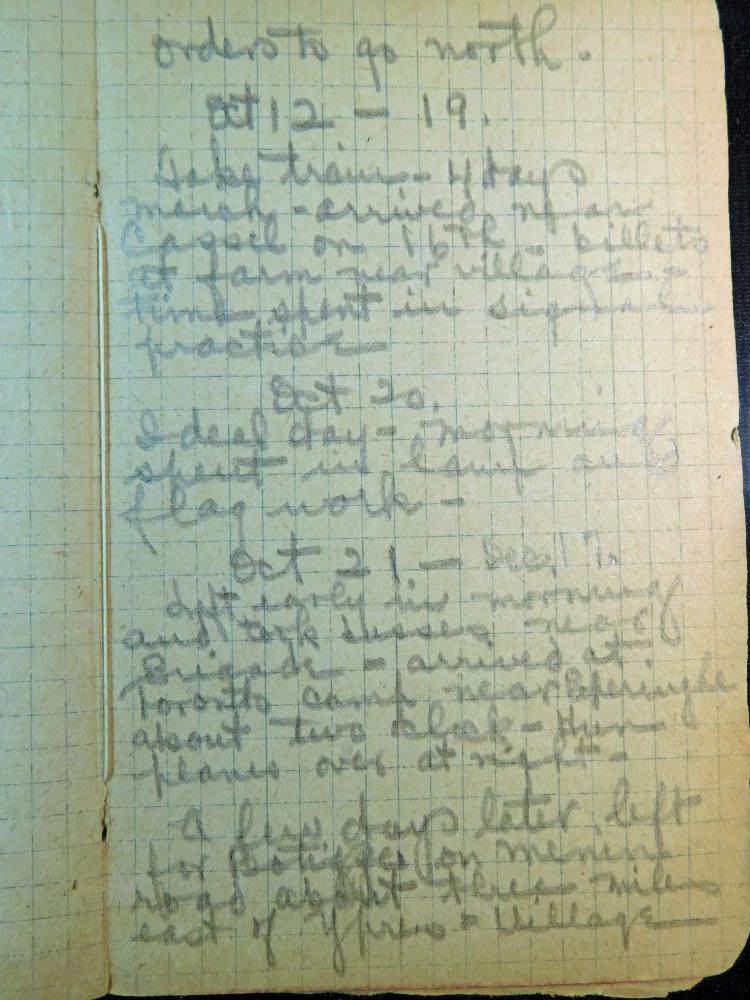 orders to go north.
Oct 12 - 19.
Take train - 4 days
march - arrived near
Cassel on 16th - billets
at farm near village -
time spent in signal
practice
Oct 20.
Ideal day - morning
spent in lamp and
flag work -
Oct 21 - Dec. 17.
Left early in morning
and took busses near
Brigade - arrived at
Toronto camp near
about two clock - Hun
planes over at night -
A few days later left
for Potijze on Menin
road about three miles
east of Ypres - Village